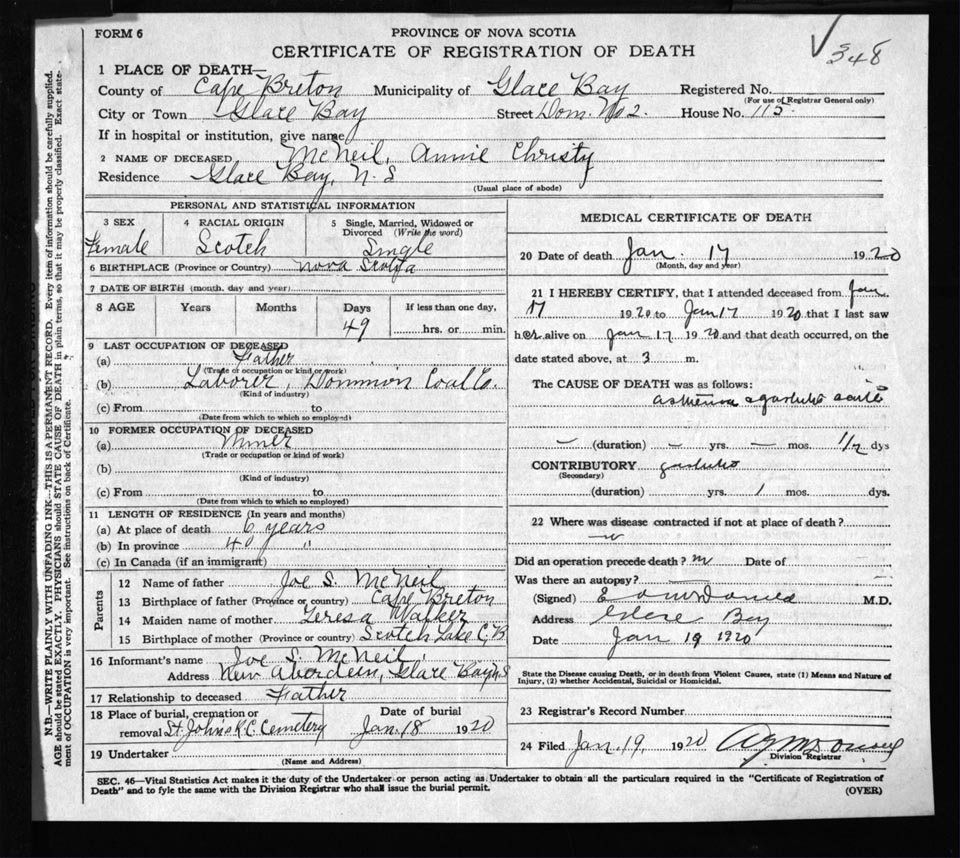 FORM 6
PROVINCE OF NOVA SCOTIA
CERTIFICATE OF REGISTRATION OF DEATH
348
1 PLACE OF DEATH—
County of Cape Breton Municipality of Glace Bay Registered No.
(For use of Registrar General only)
City or Town Glace Bay Street Dom. No 2. House No. 115
If in hospital or institution, give name
2 NAME OF DECEASED McNeil, Annie Christy
Residence Glace Bay, N.S
(Usual place of abode)
PERSONAL AND STATISTICAL INFORMATION
3 SEX 4 RACIAL ORIGIN 5 Single, Married, Widowed or Divorced (Write the word)
Female Scotch Single
6 BIRTHPLACE (Province or Country) Nova Scotia
7 DATE OF BIRTH (month, day and year)
8 AGE Years Months Days If less than one day,
49 hrs. or min.
9 LAST OCCUPATION OF DECEASED
(a) Father
(Trade or occupation or kind of work)
(b) Laborer, Dominion Coal Co.
(Kind of industry)
(c) From to
(Date from which to which so employed)
10 FORMER OCCUPATION OF DECEASED
(a) Miner
(Trade or occupation or kind of work)
(b)
(Kind of industry)
(c) From to
(Date from which to which so employed)
11 LENGTH OF RESIDENCE (In years and months)
(a) At place of death 6 years
(b) In province 40 "
(c) In Canada (if an immigrant)
Parents
12 Name of father Joe S. McNeil
13 Birthplace of father (Province or country) Cape Breton
14 Maiden name of mother Teresa Walker
15 Birthplace of mother (Province or country) Scotch Lake C.B
16 Informant's name Joe S. McNeil
Address New Aberdeen, Glace Bay N.S
17 Relationship to deceased Father
18 Place of burial, cremation or removal St. Johns R.C. Cemetery Date of burial Jan. 18 1920
19 Undertaker
(Name and Address)
MEDICAL CERTIFICATE OF DEATH
20 Date of death Jan. 17 1920
(Month, day and year)
21 I HEREBY CERTIFY, that I attended deceased from Jan
17 1920 to Jan 17 1920 that I last saw
her alive on Jan 17 1920 and that death occurred, on the
date stated above, at 3 m.
The CAUSE OF DEATH was as follows:
— (duration) — yrs. — mos. 1/2 dys
CONTRIBUTORY
(Secondary)
(duration) yrs. 1 mos. dys.
22 Where was disease contracted if not at place of death?
Did an operation precede death? Date of
Was there an autopsy?
(Signed) M.D.
Address Glace Bay
Date Jan 19 1920
State the Disease causing Death, or in death from Violent Causes, state (1) Means and Nature of
Injury, (2) whether Accidental, Suicidal or Homicidal.
23 Registrar's Record Number
24 Filed Jan. 19, 1920
Division Registrar
SEC. 46—Vital Statistics Act makes it the duty of the Undertaker or person acting as Undertaker to obtain all the particulars required in the "Certificate of Registration of
Death" and to fyle the same with the Division Registrar who shall issue the burial permit. (OVER)
N.B.—WRITE PLAINLY WITH UNFADING INK—THIS IS A PERMANENT RECORD. Every item of information should be carefully supplied.
AGE should be stated EXACTLY. PHYSICIANS should STATE CAUSE OF DEATH in plain terms, so that it may be properly classified. Exact state-
ment of OCCUPATION is very important. See instructions on back of Certificate.